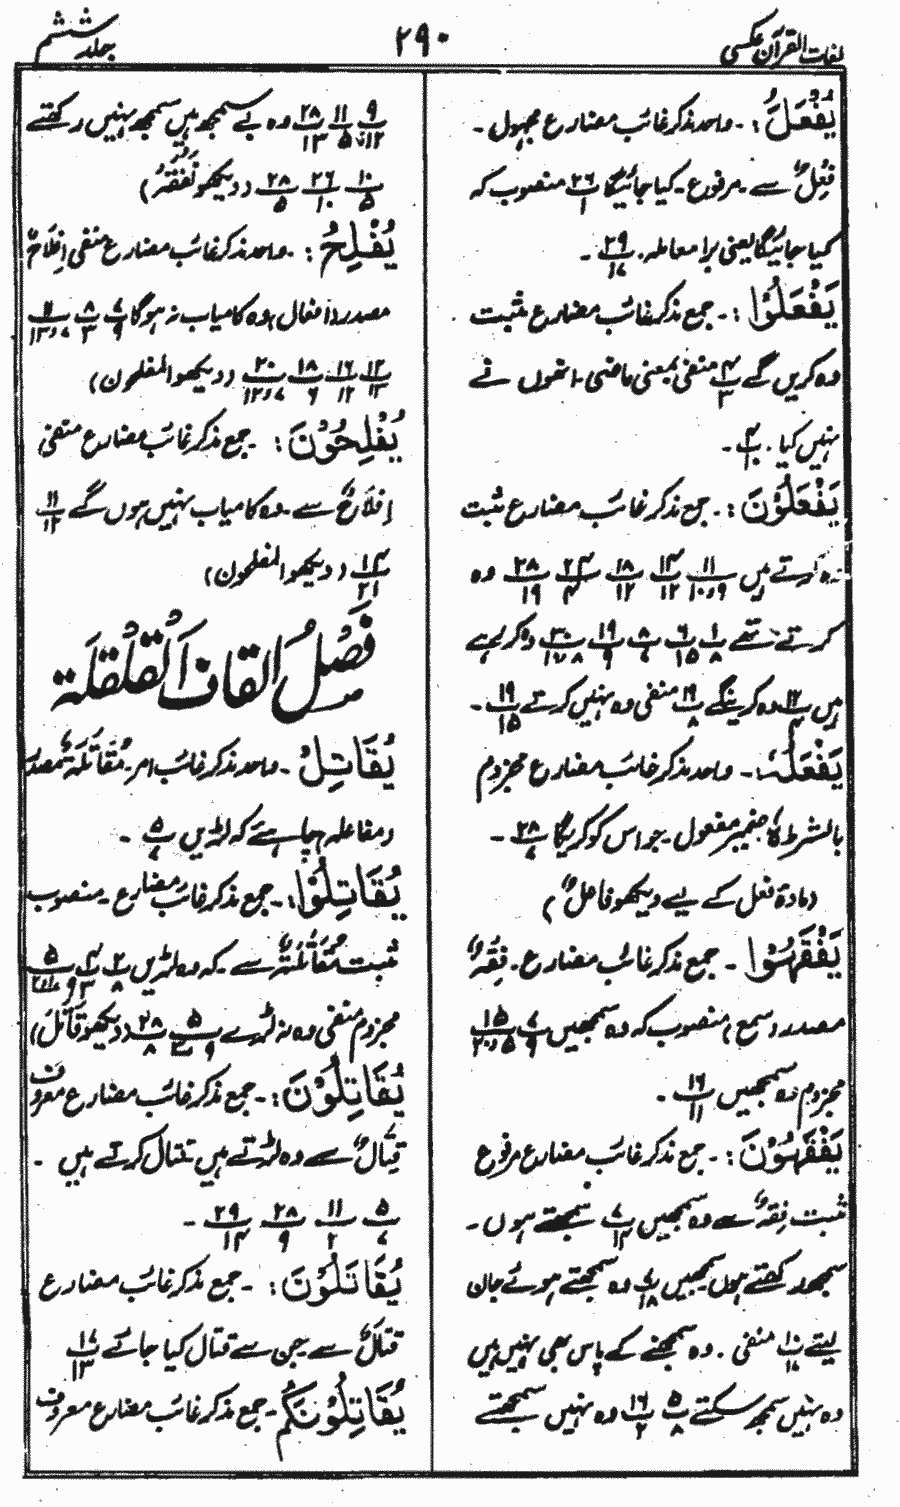 لغات القرآن عکسی
۲۹۰
جلد ششم
یُفْعَلَ :۔ واحد مذکر غائب مضارع مجہول ۔
فِعْلٌ سے ۔ مرفوع ۔ کیا جائیگا ۲۶/۱ منصوب کہ
کیا جائیگا یعنی برا معاملہ ۔ ۲۹/۱۷ ۔
یَفْعَلُوْا :۔ جمع مذکر غائب مضارع مثبت
وہ کریں گے ۴/۳ منفی بمعنی ماضی ۔ انھوں نے
نہیں کیا ۔ ۴/۱۰ ۔
یَفْعَلُوْنَ :۔ جمع مذکر غائب مضارع مثبت
وہ کرتے ہیں ۱۱/۱۰،۹ ۱۴/۱۲ ۱۸/۱۲ ۲۴/۴ ۲۸/۱۹ وہ
کرتے تھے ۱/۸ ۶/۱۵ ۸/۷ ۱۹/۹ ۳۰/۱۷،۸ وہ کر رہے
ہیں ۱۲/۴ وہ کرینگے ۱۹/۸ منفی وہ نہیں کرتے ۱۹/۱۵ ۔
یَفْعَلْہُ :۔ واحد مذکر غائب مضارع مجزوم
بالشرط ہٗ ضمیر مفعول ۔ جو اس کو کریگا ۲۸/۷ ۔
(مادۃ فعل کے لیے دیکھو فَاعِلٌ)
یَفْقَہُوْا ۔ جمع مذکر غائب مضارع ۔ فِقْہٌ
مصدر (سمع) منصوب کہ وہ سمجھیں ۷/۹ ۱۵/۲۰،۵
مجزوم وہ سمجھیں ۱۶/۱۱ ۔
یَفْقَہُوْنَ :۔ جمع مذکر غائب مضارع مرفوع
مثبت فِقْہٌ سے وہ سمجھیں ۷/۱۴ سمجھتے ہوں ۔
سمجھ رکھتے ہوں سمجھیں ۷/۱۸ وہ سمجھتے ہوئے جان
لیتے ۱۰/۱۷ منفی ۔ وہ سمجھنے کے پاس بھی نہیں ہیں
وہ نہیں سمجھ سکتے ۵/۸ ۱۶/۲ وہ نہیں سمجھتے
۹/۱۲،۷ ۱۱/۵ ۲۸/۱۳ وہ بے سمجھ ہیں سمجھ نہیں رکھتے
۱۰/۵ ۲۶/۱۰ ۲۸/۵ (دیکھو نَفْقَہُ)
یُفْلِحُ :۔ واحد مذکر غائب مضارع منفی اِفْلَاحٌ
مصدر (افعال) وہ کامیاب نہ ہوگا ۷/۹ ۸/۳ ۱۱/۱۳،۷
۱۲/۱۳ ۱۶/۱۲ ۱۸/۶ ۲۰/۱۲،۷ (دیکھو المفلحون)
یُفْلِحُوْنَ :۔ جمع مذکر غائب مضارع منفی
اِفْلَاحٌ سے ۔ وہ کامیاب نہیں ہوں گے ۱۱/۱۲
۱۴/۲۱ (دیکھو المفلحون)
فَصْلُ القاف الْقَلْقَلَة
یُقَاتِلْ ۔ واحد مذکر غائب امر ۔ مُقَاتَلَۃٌ مصدر
ومفاعلہ چاہئے کہ لڑیں ۵/۷ ۔
یُقَاتِلُوْا :۔ جمع مذکر غائب مضارع ۔ منصوب
مثبت مُقَاتَلَۃٌ سے ۔ کہ وہ لڑیں ۲/۸ ۴/۳،۹ ۵
مجزوم منفی وہ نہ لڑے ۵/۹ ۲۸/۸ (دیکھو قَاتَلَ)
یُقَاتِلُوْنَ :۔ جمع مذکر غائب مضارع معروف
قِتَالٌ سے وہ لڑتے ہیں قتال کرتے ہیں ۔
۵/۷ ۱۱/۲ ۲۸/۹ ۲۹/۱۴ ۔
یُقَاتَلُوْنَ :۔ جمع مذکر غائب مضارع
قتالٌ سے جن سے قتال کیا جائے ۱۷/۱۳
یُقَاتِلُوْنَکُمْ ۔ جمع مذکر غائب مضارع معروف